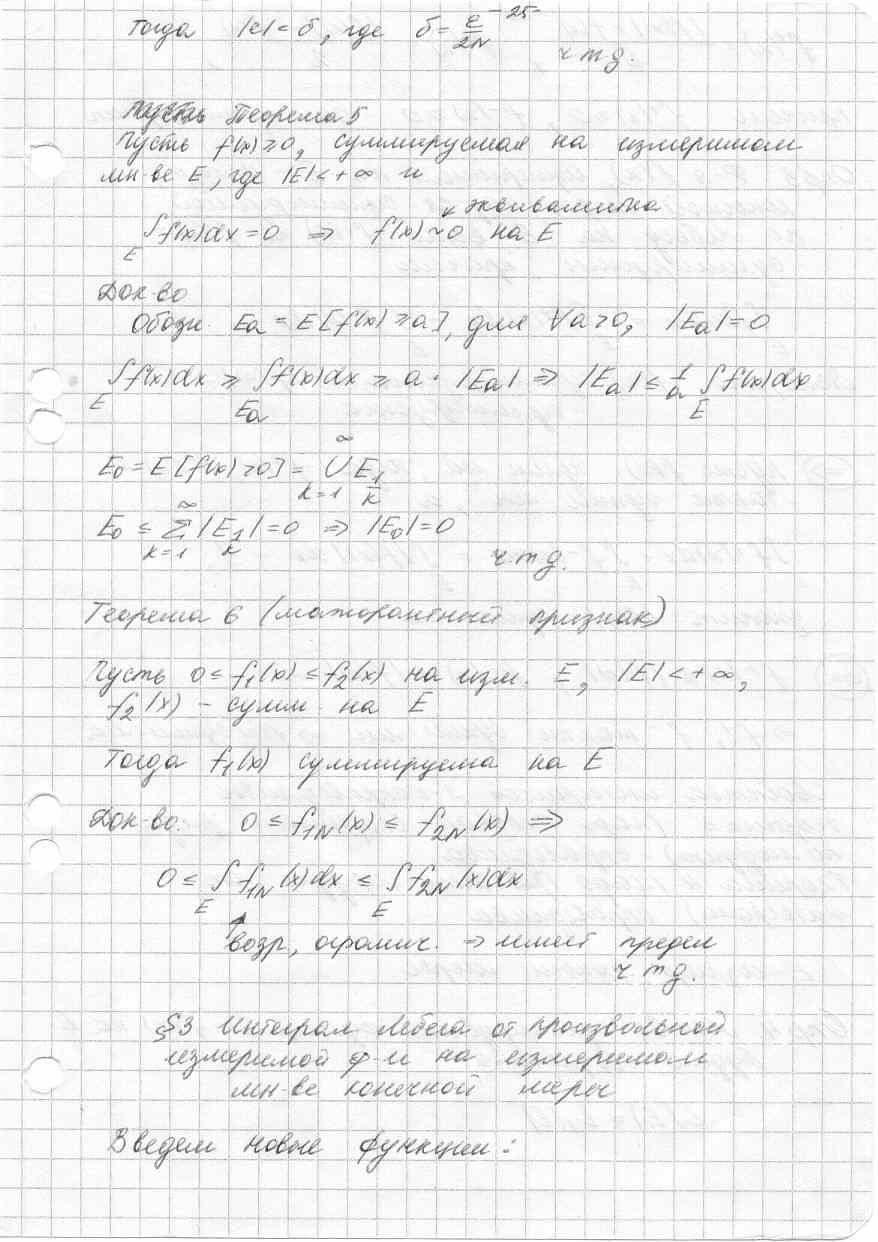 Тогда |e| = δ, где δ = ε/2N
- 25 -
ч.т.д.
Теорема 5
Пусть f(x) ≥ 0, суммируемая на измеримом
мн-ве E, где |E| < +∞ и
эквивалентна
∫_E f(x)dx = 0 ⇒ f(x) ~ 0 на E
Док-во
Обозн. E_a = E[f(x) ≥ a], для ∀a > 0, |E_a| = 0
∫_E f(x)dx ≥ ∫_{E_a} f(x)dx ≥ a · |E_a| ⇒ |E_a| ≤ 1/a ∫_E f(x)dx
E_0 = E[f(x) > 0] = ∪_{k=1}^∞ E_{1/k}
E_0 ≤ Σ_{k=1}^∞ |E_{1/k}| = 0 ⇒ |E_0| = 0
ч.т.д.
Теорема 6 (мажорантный признак)
Пусть 0 ≤ f_1(x) ≤ f_2(x) на изм. E, |E| < +∞,
f_2(x) - сумм. на E
Тогда f_1(x) суммируема на E
Док-во: 0 ≤ f_{1N}(x) ≤ f_{2N}(x) ⇒
0 ≤ ∫_E f_{1N}(x)dx ≤ ∫_E f_{2N}(x)dx
возр., огранич. ⇒ имеет предел
ч.т.д.
§3 Интеграл Лебега от произвольной
измеримой ф-и на измеримом
мн-ве конечной меры
Введем новые функции: